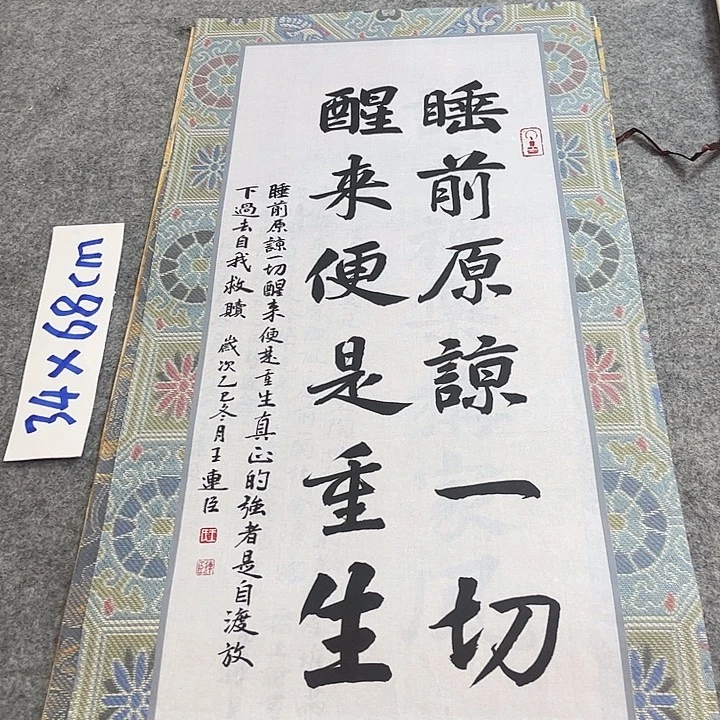 睡前原諒一切
醒来便是重生
睡前原諒一切醒来便是重生真正的強者是自渡放
下過去自我救贖 歲次乙巳冬月王連臣
34×68cm